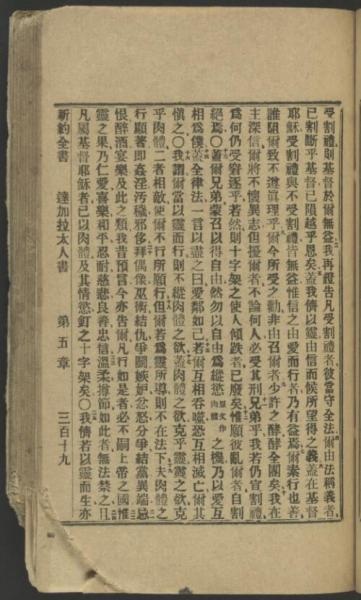 受割禮則基督於爾無益我再證告凡受割禮者彼當守全法爾由法稱義者
已割斷乎基督已隕越乎恩矣蓋我儕以靈由信而候所望得之義蓋在基督
耶穌受割禮與不受割禮皆無益惟信之由愛而行者乃有益焉爾素行也善
誰阻爾致不遵眞理乎爾今所受之勸非由召爾者少許之酵酵全團矣我在
主深信爾將不懷異志但擾爾者不論何人必受其刑兄弟乎我若仍宣割禮
爲何仍受窘逐乎若然則十字架之使人傾跌者已廢矣惟願彼亂爾者自割
絕焉〇蓋爾兄弟蒙召以得自由然勿以自由爲縱慾原作肉體之機乃以愛互
相爲僕蓋全律法一言以盡之曰愛鄰如己若爾互相吞噬恐互相滅亡爾其
愼之〇我謂爾當以靈而行則不縱肉體之欲蓋肉體之欲克乎靈靈之欲克
乎肉體二者相敵使爾不行所願行但爾若爲靈所導則不在法下夫肉體之
行顯著卽姦淫污穢邪侈拜偶像巫術結仇爭鬬嫉妒忿怒分爭結黨異端
恨醉酒宴樂及此之類我昔預言今亦告爾凡行如是者必不嗣上帝之國惟
靈之果乃仁愛喜樂和平忍耐慈悲良善忠信溫柔撙節如此者無法禁之且
凡屬基督耶穌者已以肉體及其情慾釘之十字架矣〇我儕若以靈而生亦
新約全書 達加拉太人書 第五章 三百十九